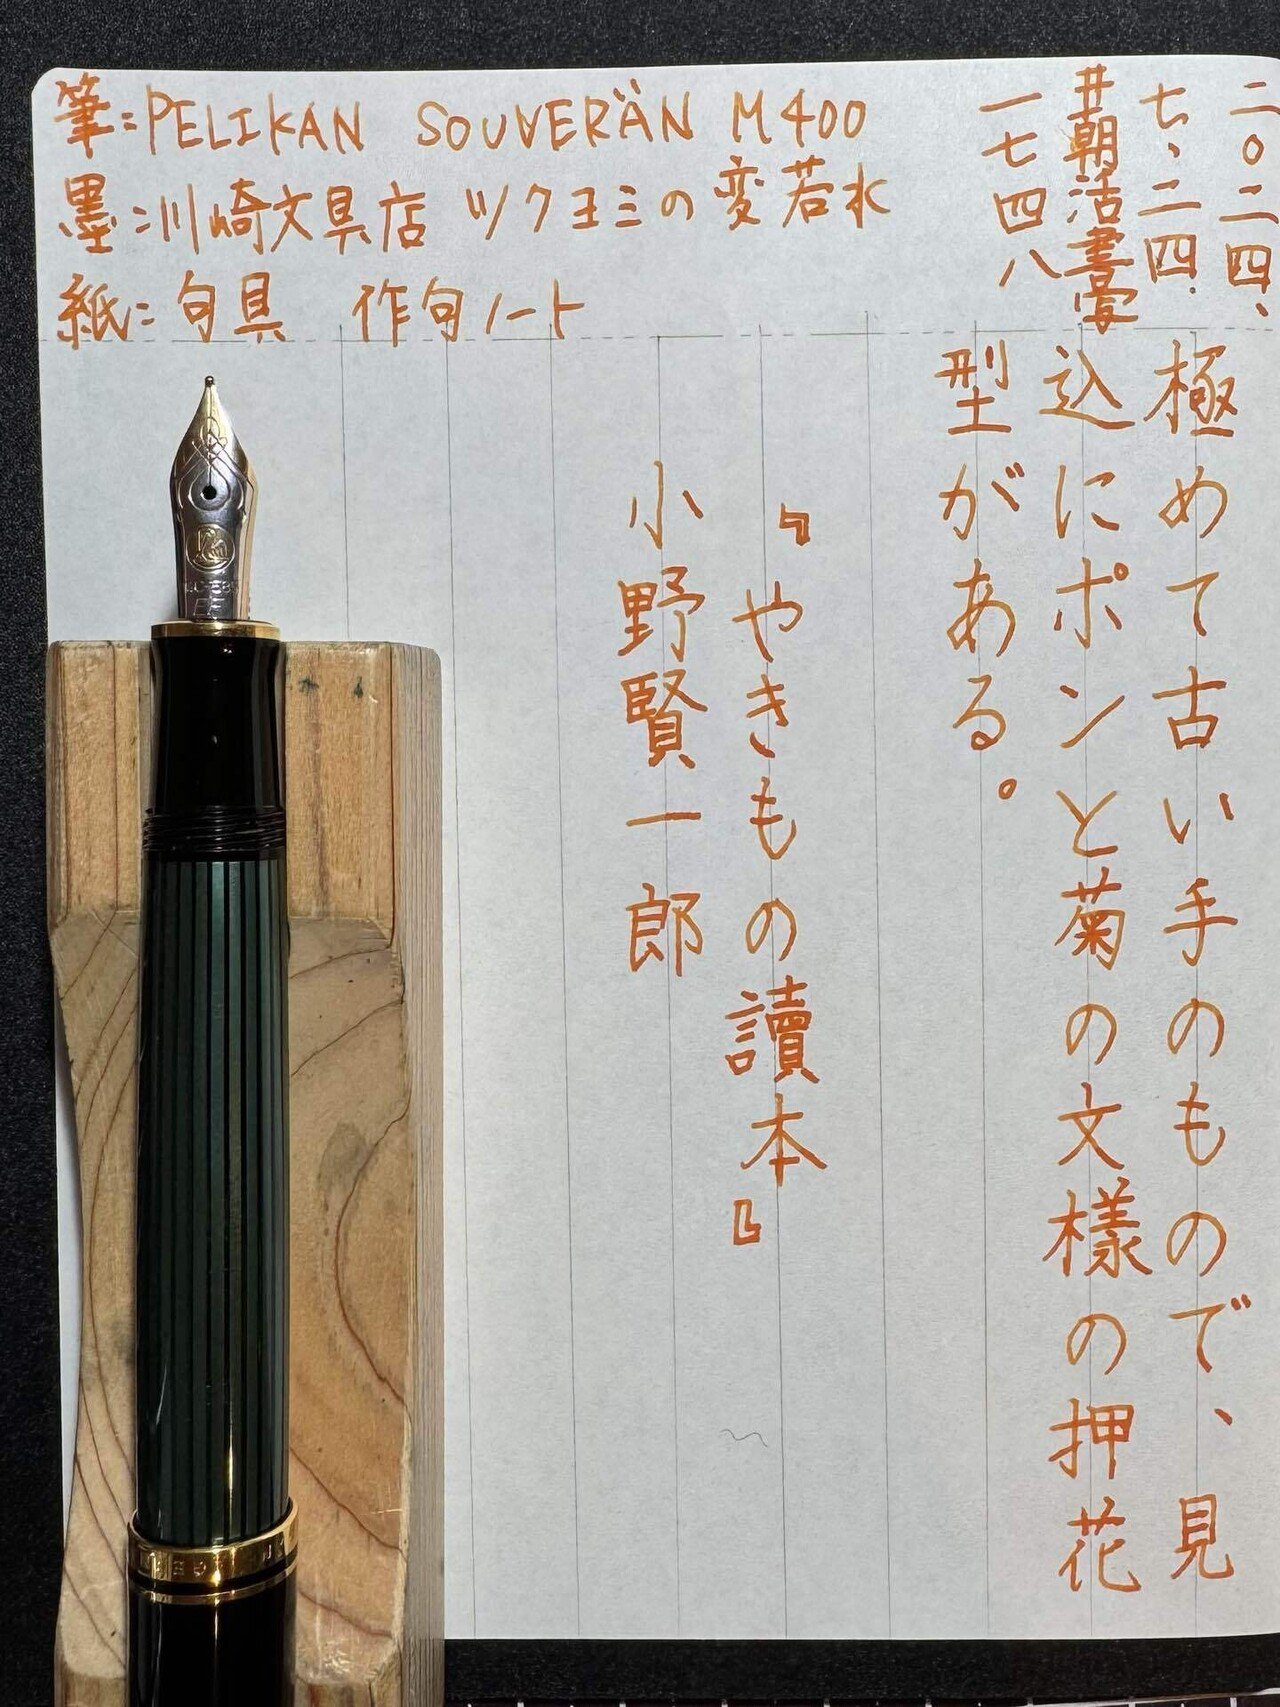 筆:PELIKAN SOUVERÄN M400
墨:川崎文具店 ツクヨミの変若水
紙:句具 作句ノート
二〇二四、
七、二四.
#朝活書寫
一七四八
極めて古い手のもので、見
込にポンと菊の文様の押花
型がある。
『やきもの讀本』
小野賢一郎